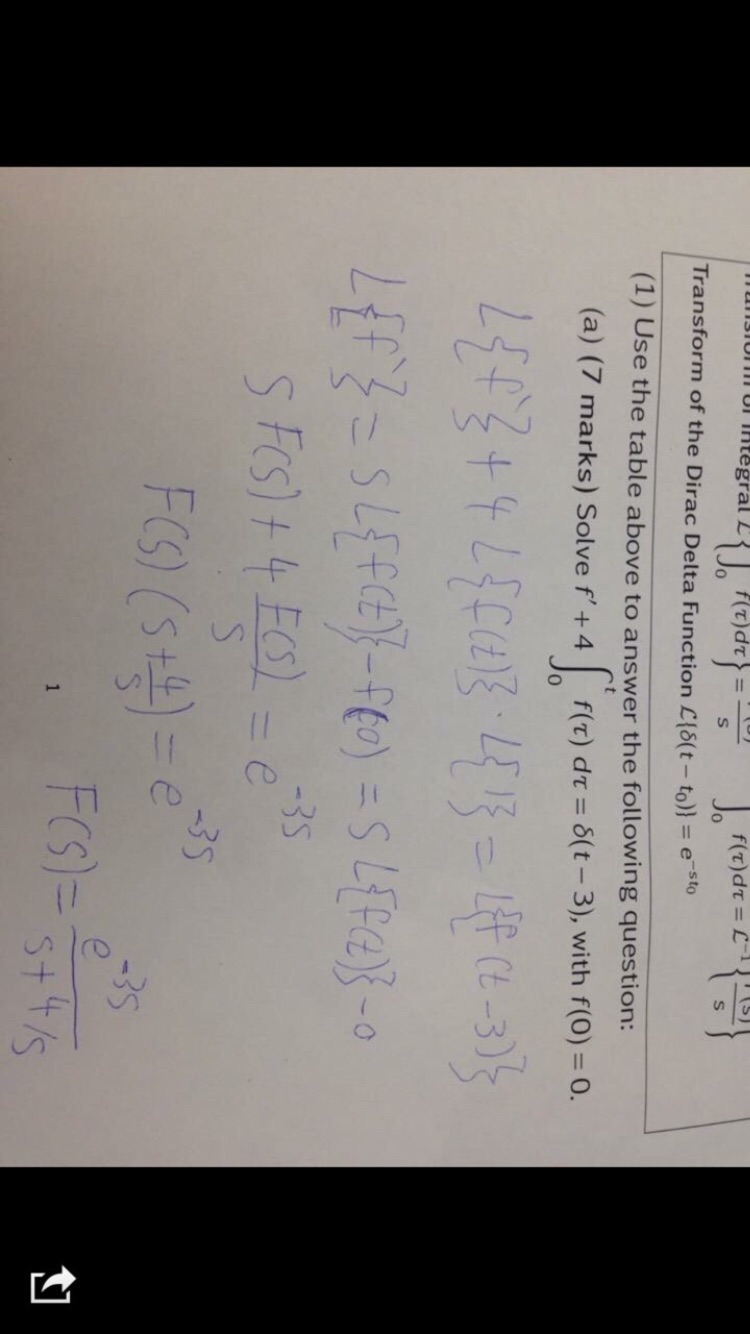 Transform of Integral ℒ{∫₀ f(τ)dτ} = F(s)/s ∫₀ f(τ)dτ = ℒ⁻¹{F(s)/s}
Transform of the Dirac Delta Function ℒ{δ(t − t₀)} = e^{−st₀}
(1) Use the table above to answer the following question:
(a) (7 marks) Solve f′ + 4 ∫₀ᵗ f(τ) dτ = δ(t − 3), with f(0) = 0.
L{f`} + 4 L{f(t)} · L{1} = L{f(t-3)}
L{f`} = S L{f(t)} - f(0) = S L{f(t)} - 0
S F(s) + 4 F(s)/S = e^{-3s}
F(s) (s + 4/s) = e^{-3s}
F(s) = e^{-3s}/(s + 4/s)
1